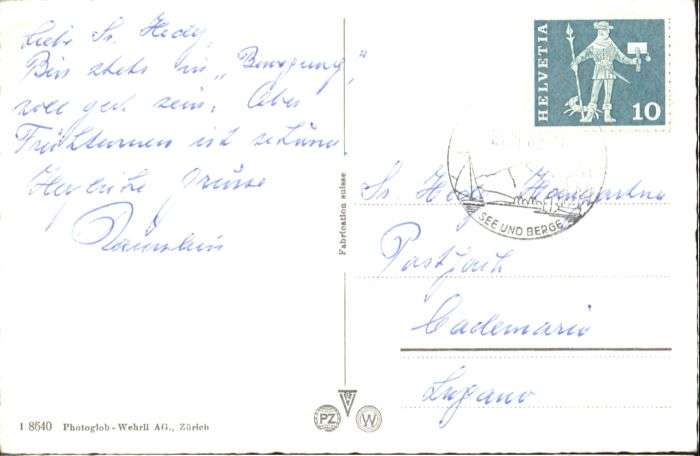 Liebe Sr. Hedy,
Bin stets in „Bewegung"
soll gut sein. Aber
Frühturnen ist schöne
Herzliche Grüsse
I 8640 Photoglob-Wehrli AG., Zürich
Fabrication suisse
PZ
W
HELVETIA
10
SEE UND BERGE
Sr. Hedy
Postfach
Cademario
Lugano